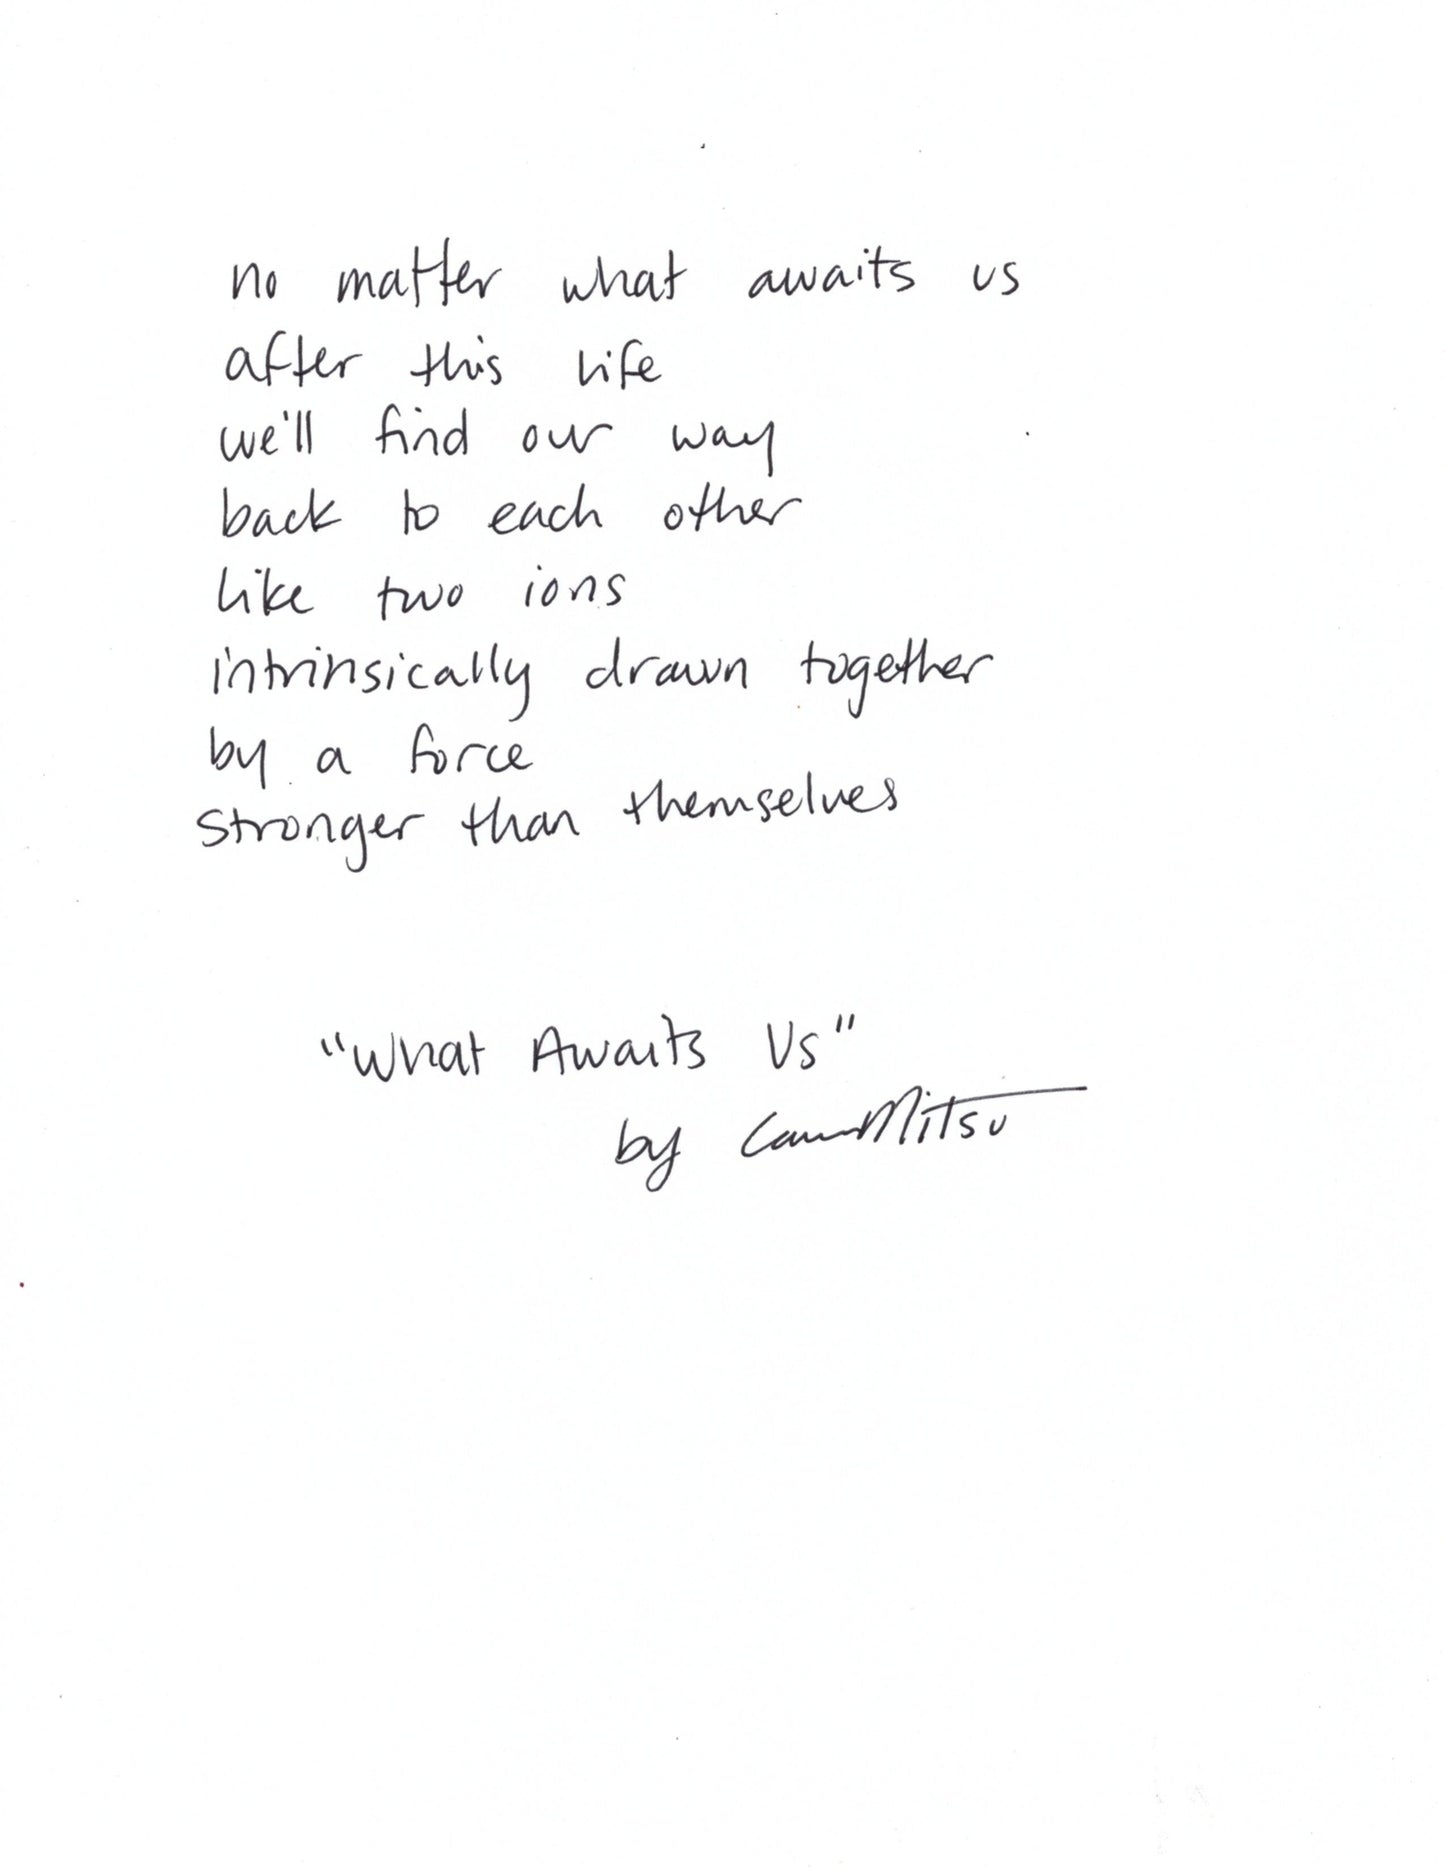 no matter what awaits us
after this life
we'll find our way
back to each other
like two ions
intrinsically drawn together
by a force
stronger than themselves
"What Awaits Us"
by Mitsu